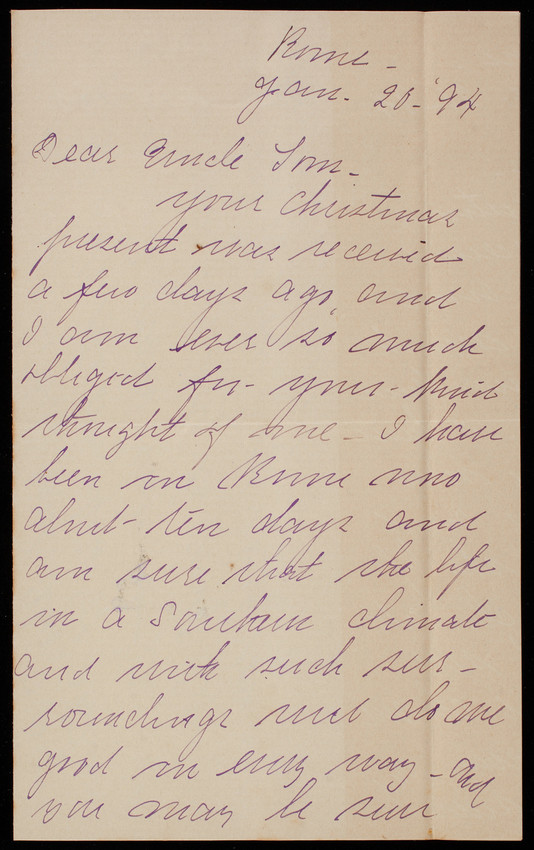 Rome -
Jan. 20 - '94
Dear Uncle Tom -
your Christmas
present was received
a few days ago, and
I am ever so much
obliged for - your - kind
thought of me - I have
been in Rome now
about - ten days and
am sure that the life
in a Southern climate
and with such sur-
roundings will do me
good in every way - and
you may be sure